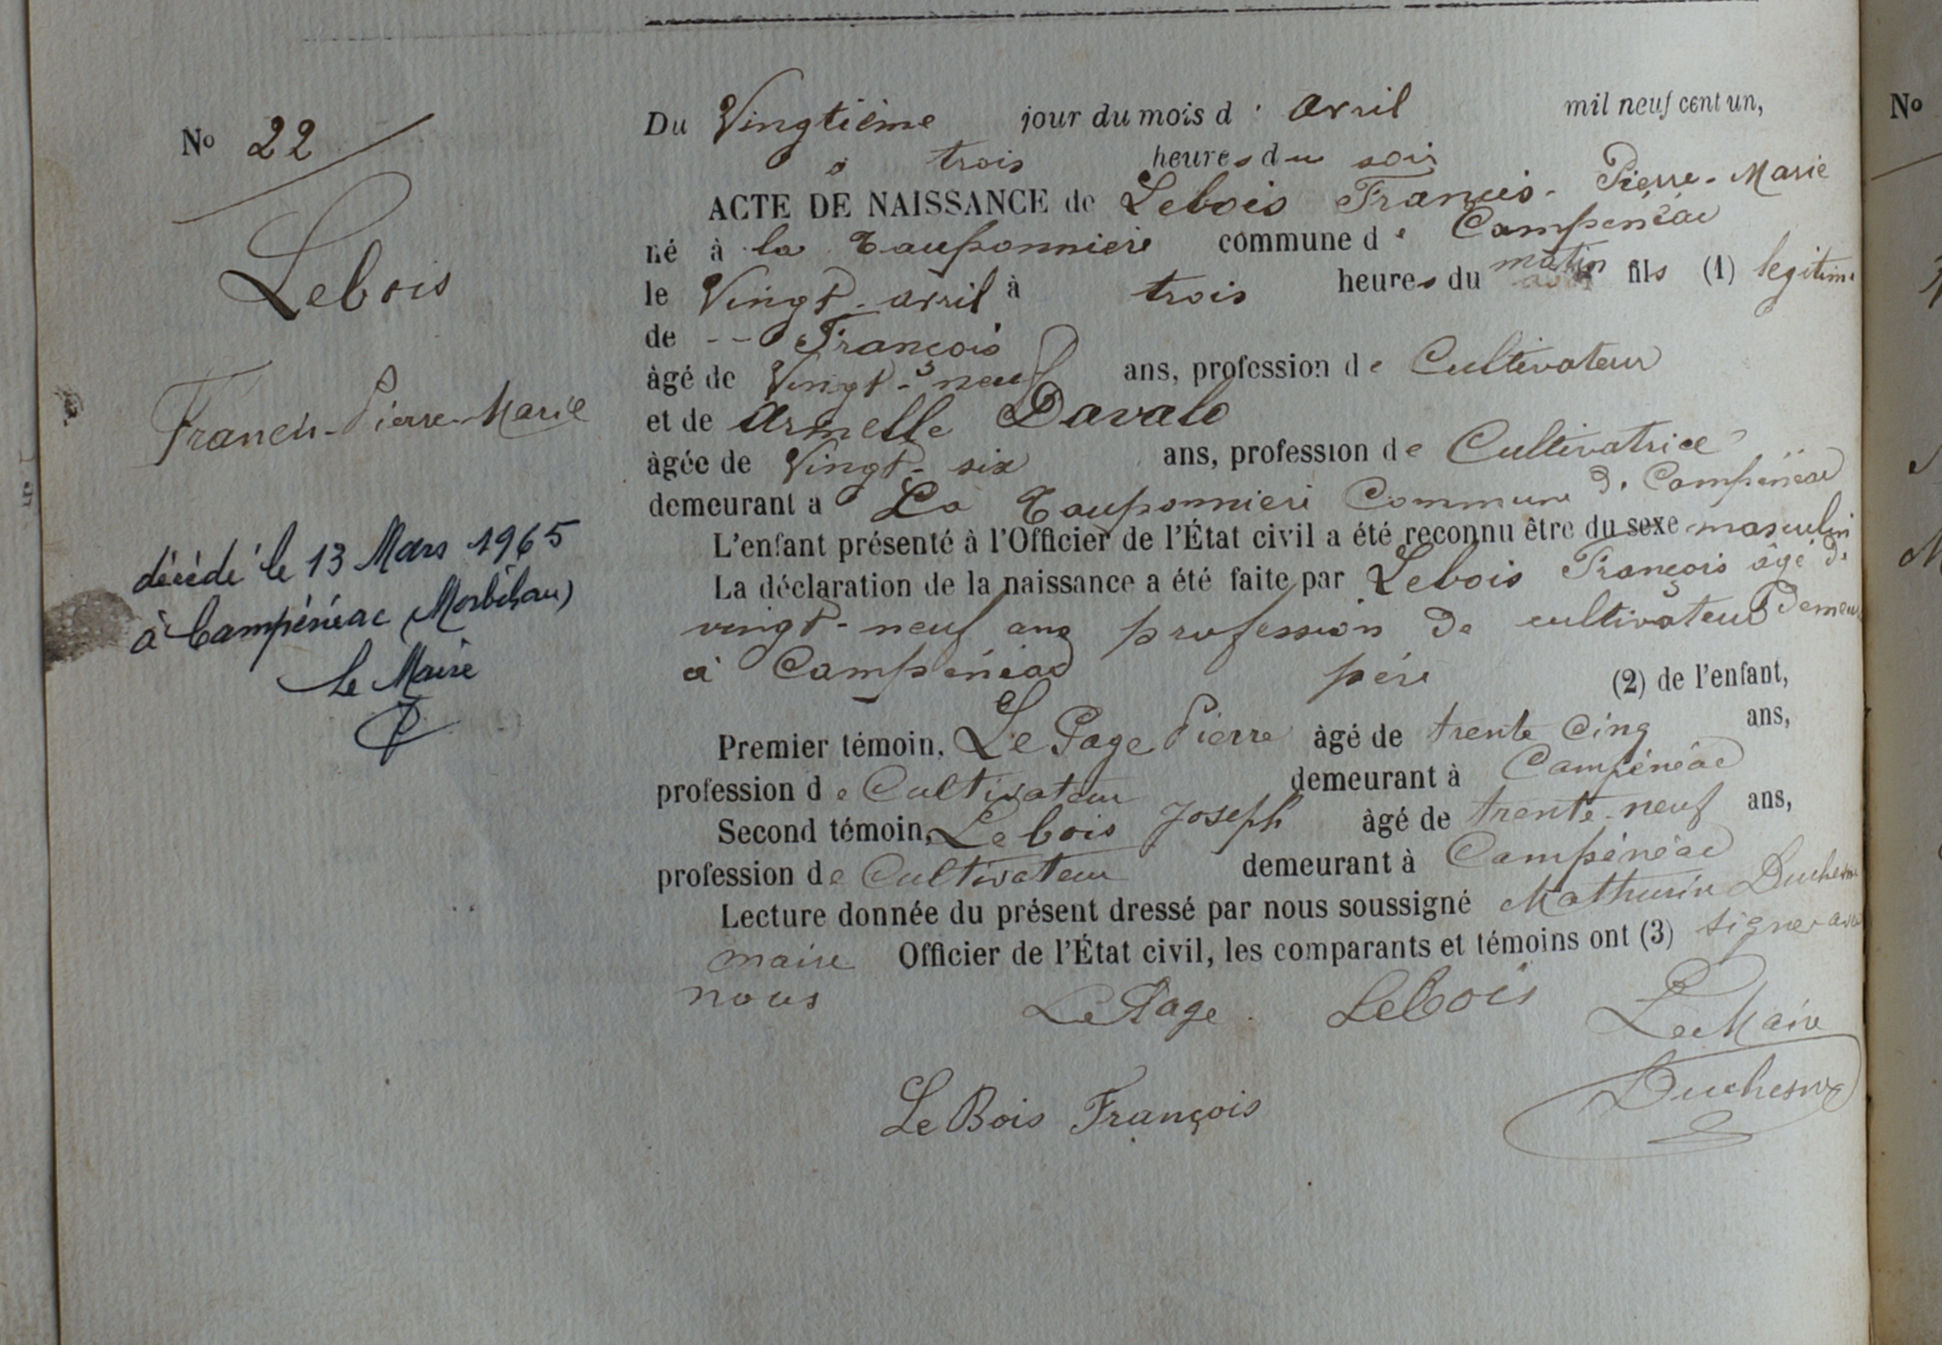 No 22
Lebois
Francis-Pierre-Marie
décédé le 13 Mars 1965
à Campénéac (Morbihan)
Le Maire
Du Vingtième jour du mois d' avril mil neuf cent un,
à trois heures du soir
ACTE DE NAISSANCE de Lebois Francis-Pierre-Marie
né à la Tauponnière commune de Campénéac
le Vingt-avril à trois heures du matin fils (1) légitime
de -- François
âgé de Vingt-neuf ans, profession de Cultivateur
et de Armelle Davalo
âgée de Vingt-six ans, profession de Cultivatrice
demeurant a La Tauponnière Commune de Campénéac
L'enfant présenté à l'Officier de l'État civil a été reconnu être du sexe masculin
La déclaration de la naissance a été faite par Lebois François âgé de
vingt-neuf ans profession de cultivateur
à Campénéac père (2) de l'enfant,
Premier témoin, Le Page Pierre âgé de trente cinq ans,
profession de Cultivateur demeurant à Campénéac
Second témoin, Lebois Joseph âgé de trente-neuf ans,
profession de Cultivateur demeurant à Campénéac
Lecture donnée du présent dressé par nous soussigné Mathurin Duchesne
maire Officier de l'État civil, les comparants et témoins ont (3) signer avec
nous
Le Page Lebois Le Maire
Le Bois François Duchesne
No